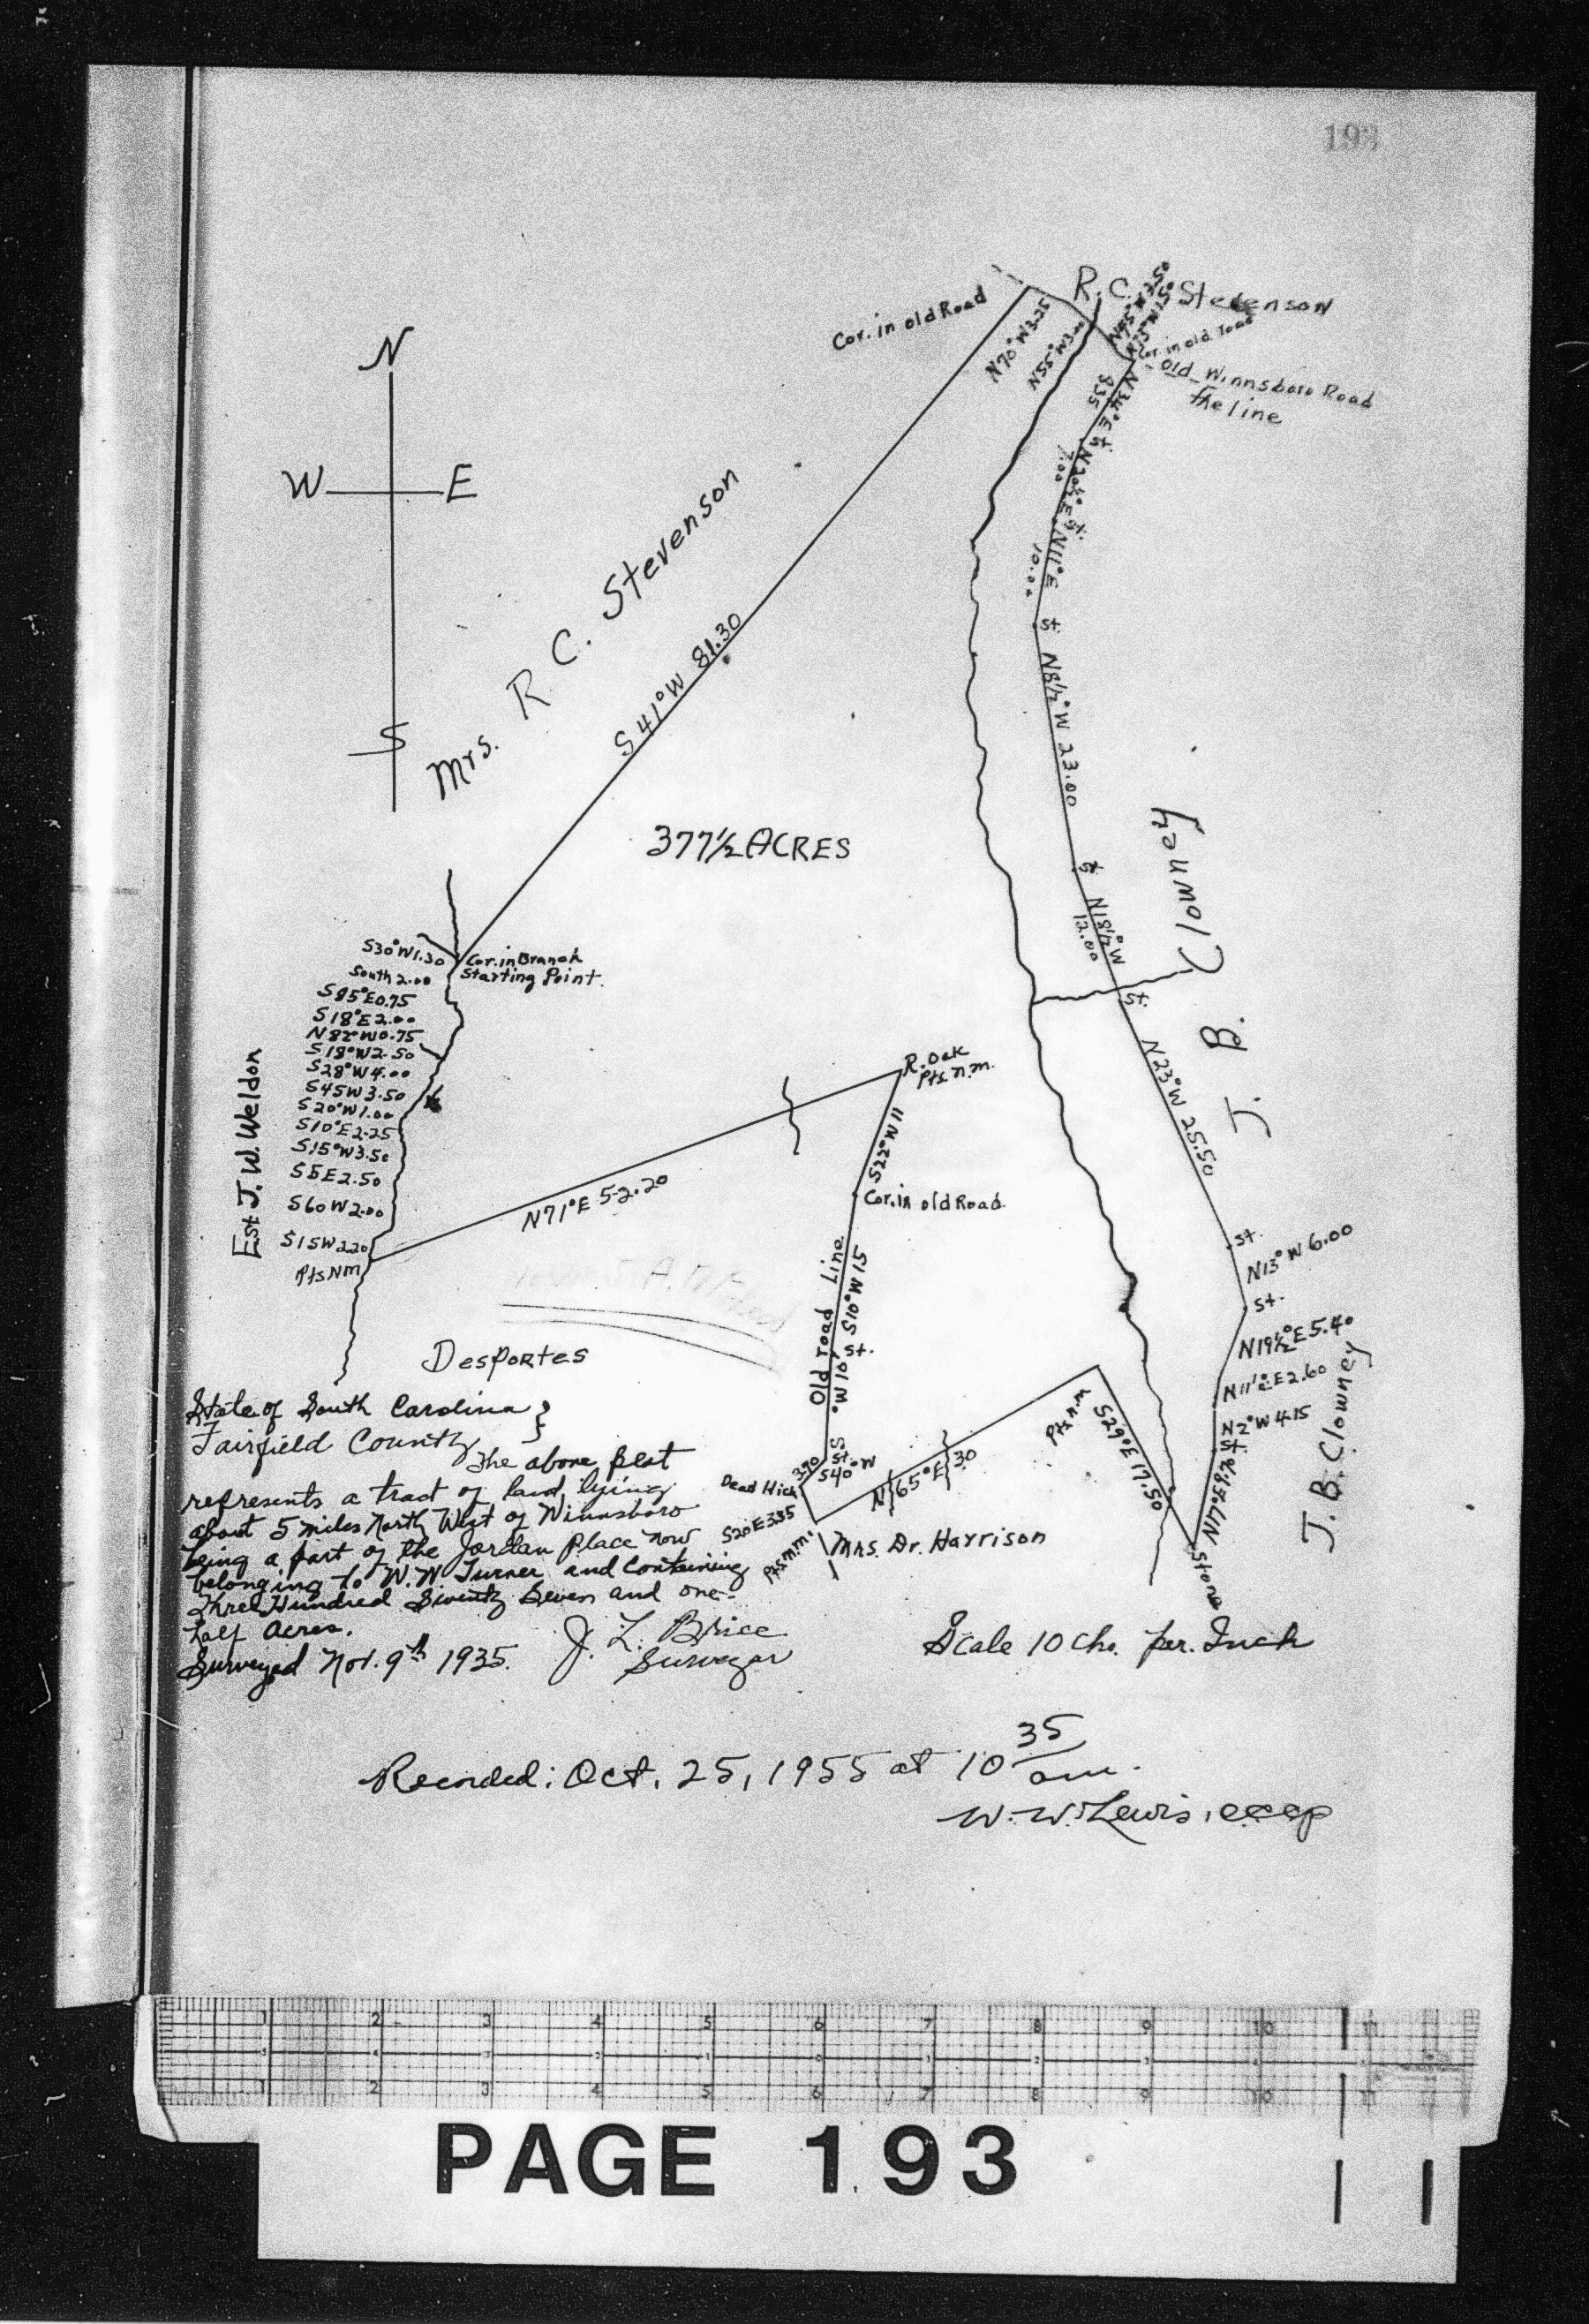 193
N
W E
S
Cor. in old Road
R. C. Stevenson
N70°W3.25
N55°W3.00
Cor. in old road
Old Winnsboro Road
the line
N34°E
9.35
St.
7.00
St.
N11°E
10.00
St.
N8½°W 23.00
St.
N18½°W
12.00
St.
N23°W 25.50
St.
N13°W 6.00
St.
N19½°E 5.40
N2°W 4.15
St.
N17°E 9.70
Stone
J. B. Clowney
J. B. Clowney
Mrs. R C. Stevenson
S 41°W 81.30
377½ ACRES
Cor. in Branch
Starting Point.
S30°W1.30
South 2.00
S85°E0.75
S18°E2.00
N82°W0.75
S18°W2.50
S28°W4.00
S45W3.50
S20°W1.00
S10°E2.25
S15°W3.50
S5E2.50
S60W2.00
S15W2.20
Pts NM
Est J. W. Weldon
N71°E 52.20
R. Oak
Pts n.m.
S22°W 11
Cor. in old Road
Old road Line
S10°W 15
St.
S 10½°W
St.
S40°W
3.70
Dead Hick
S20E3.35
Pts n.m.
N 65°E 30
Pts n.m
S29°E 17.50
Mrs. Dr. Harrison
Desportes
State of South Carolina }
Fairfield County
The above plat
represents a tract of land lying
about 5 miles North West of Winnsboro
being a part of the Jordan Place now
belonging to W. W Turner and Containing
Three Hundred Seventy Seven and one-
half acres.
Surveyed Nov. 9th 1935.
J. L. Brice
Surveyor
Scale 10 Chs. per. Inch
Recorded: Oct. 25, 1955 at 10 35 am.
W. W. Lewis, cccp
1 2 3 4 5 6 7 8 9 10 11
5 4 3 2 1 0 1 2 3 4
1 2 3 4 5 6 7 8 9 10 11
PAGE 193